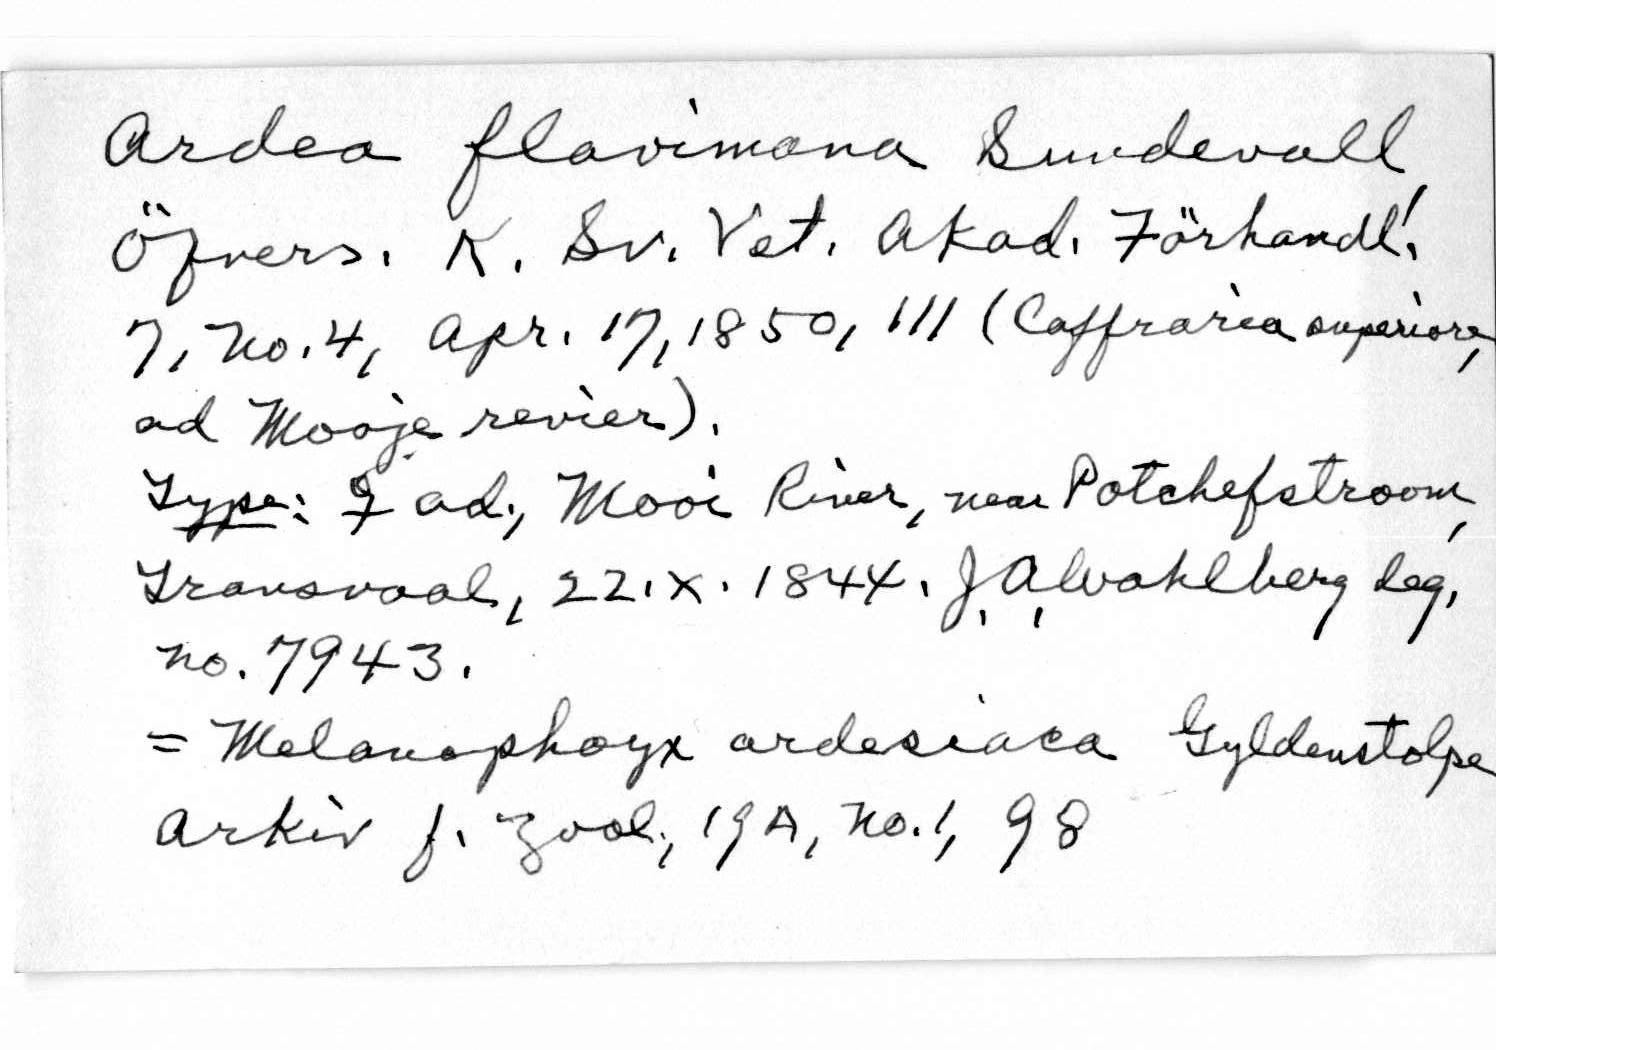 Ardea flavimana Sundevall,
Öfvers. K. Sv. Vet. Akad. Förhandl.,
7, no. 4, Apr. 17, 1850, 111 (Caffraria superiore,
ad Mooje revier).
Type: ♀ ad., Mooi River, near Potchefstroom,
Transvaal, 22.X.1844. J. A. Wahlberg leg.
no. 7943.
= Melanophoyx ardesiaca Gyldenstolpe
Arkiv f. Zool., 19A, no. 1, 98